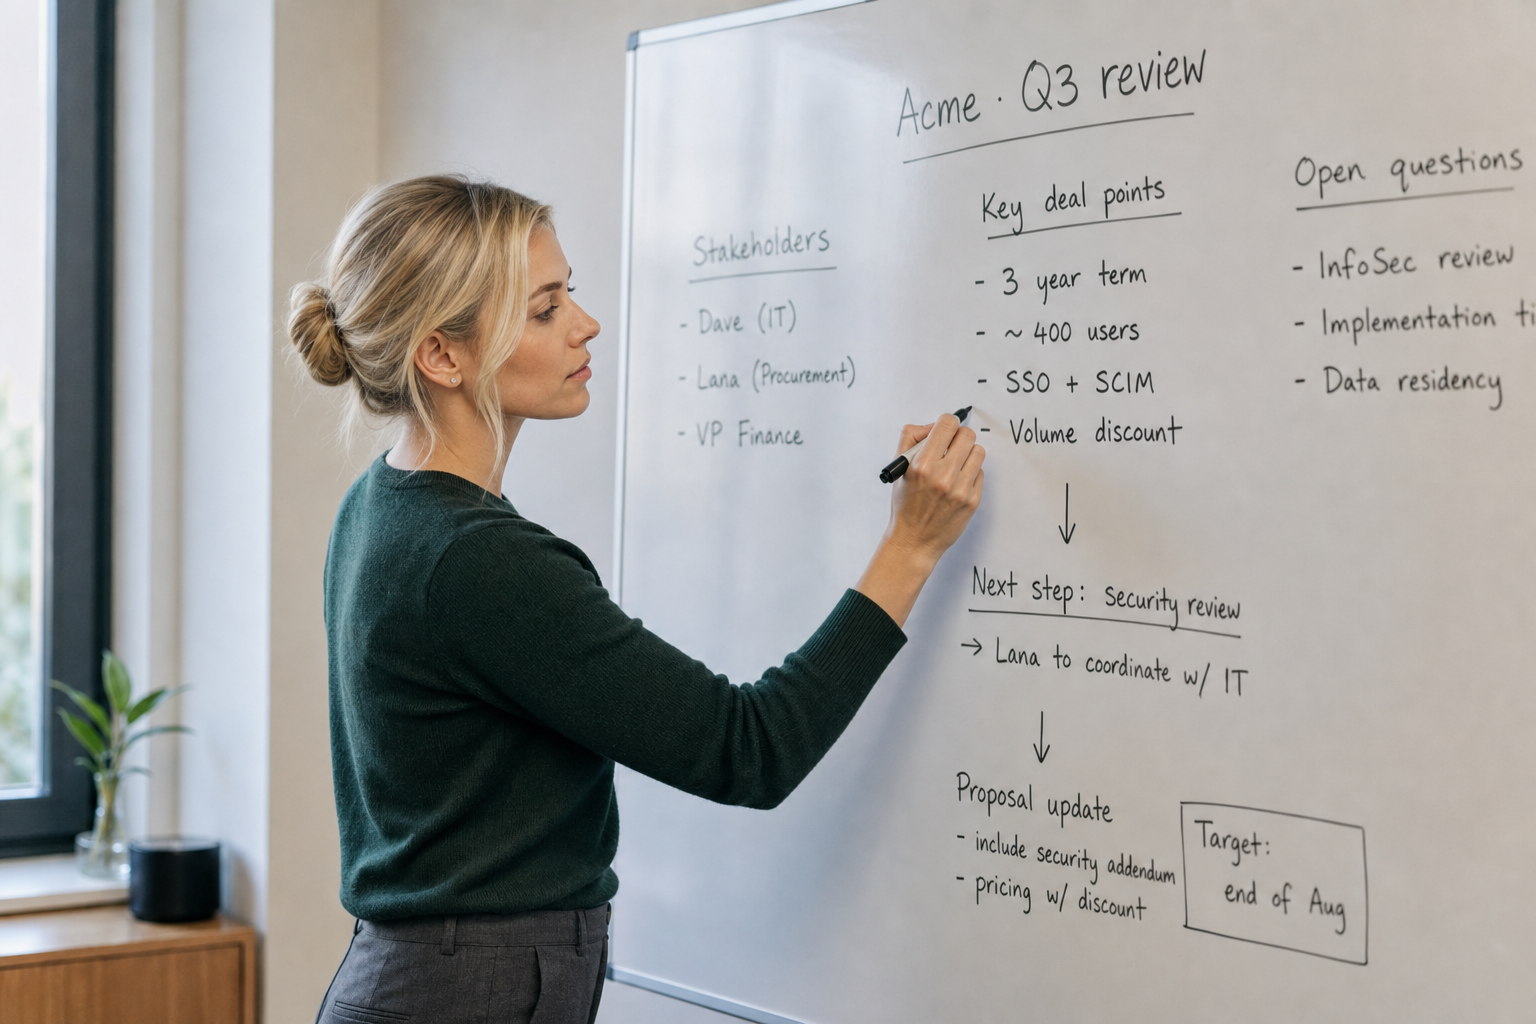 Acme · Q3 review
Stakeholders
- Dave (IT)
- Lana (Procurement)
- VP Finance
Key deal points
- 3 year term
- ~ 400 users
- SSO + SCIM
- Volume discount
↓
Next step: security review
→ Lana to coordinate w/ IT
↓
Proposal update
- include security addendum
- pricing w/ discount
Target:
end of Aug
Open questions
- InfoSec review
- Implementation
- Data residency